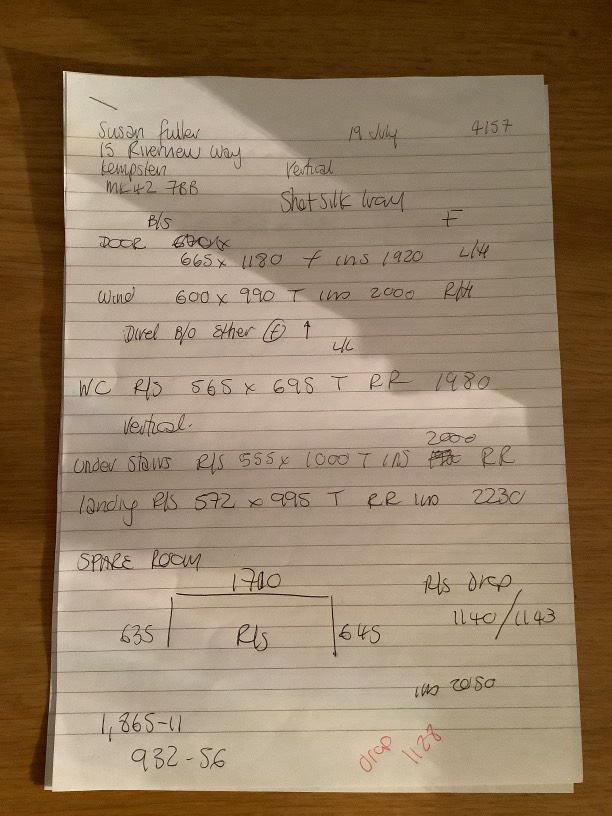 Susan Fuller 19 July 4157
15 Riverview Way
Kempston Vertical
MK42 7BB
Shot Silk Ivory
B/S F
DOOR
665 x 1180 F ins 1920 L/H
Wind 600 x 990 T ins 2000 R/H
B/O Ether (F) ↑
L/L
WC R/S 565 x 695 T RR 1980
Vertical.
2000
Under Stairs R/S 555 x 1000 T INS RR
landing R/S 572 x 995 T RR ins 2230
SPARE ROOM
1710 R/s Drop
635 R/s 645 1140/1143
ins 2050
1,865-11
932-56 drop 1128